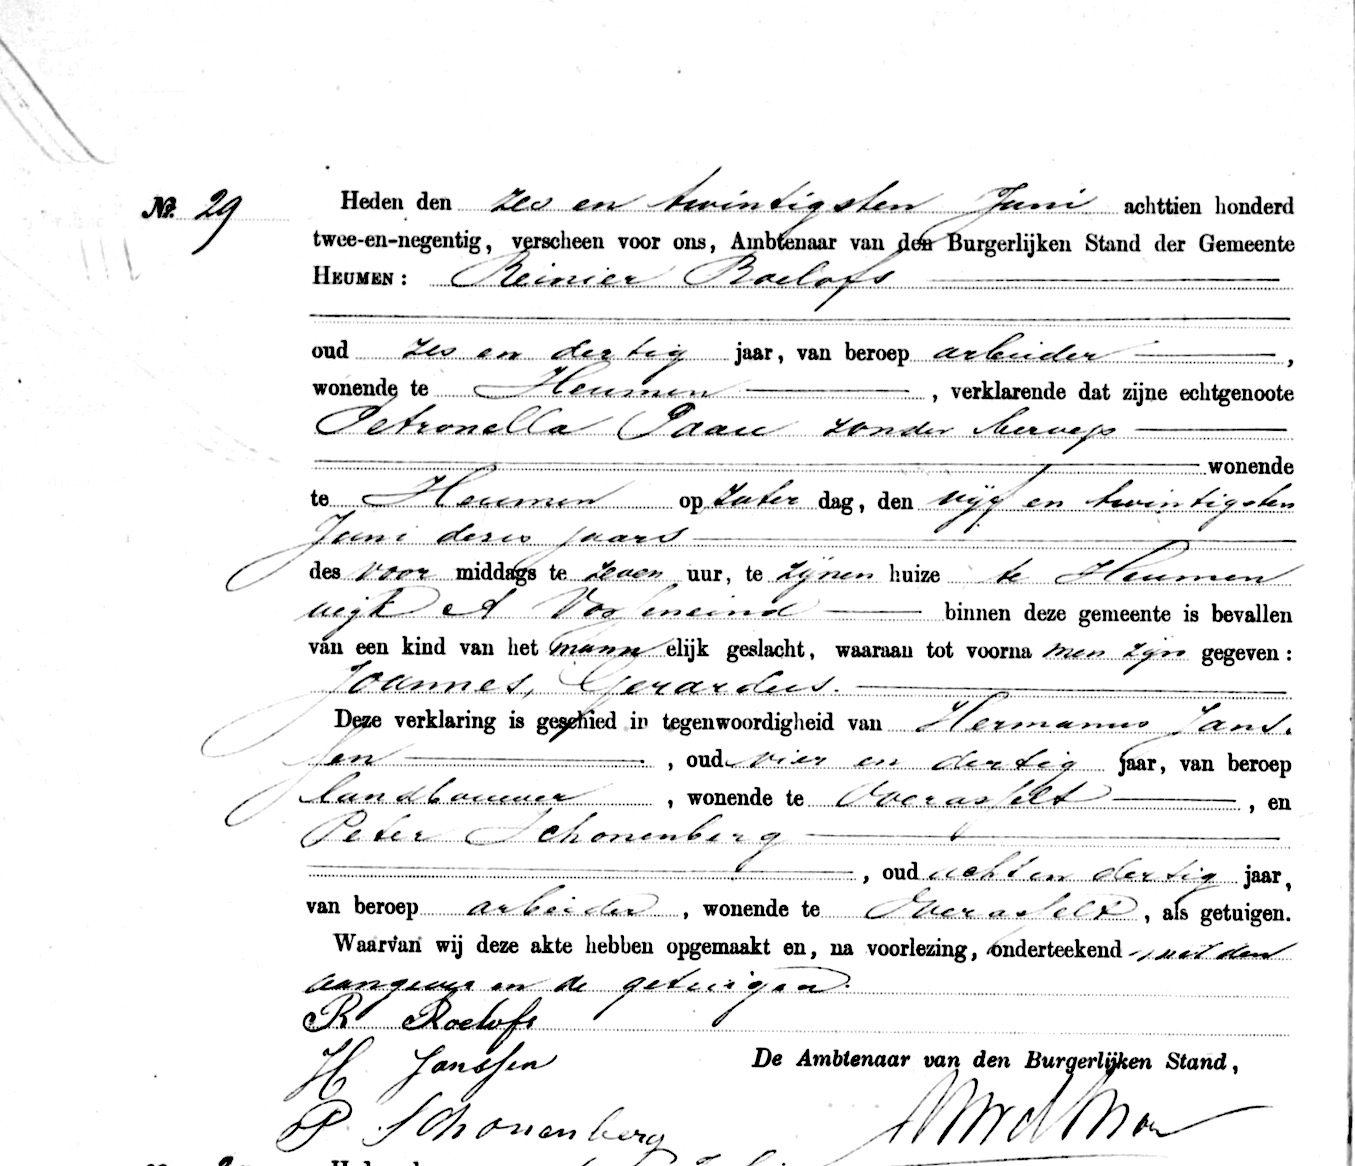 No. 29
Heden den zes en twintigsten Juni achttien honderd
twee-en-negentig, verscheen voor ons, Ambtenaar van den Burgerlijken Stand der Gemeente
HEUMEN: Reinier Roelofs
oud zes en dertig jaar, van beroep arbeider,
wonende te Heumen, verklarende dat zijne echtgenoote
Petronella Paau zonder beroep
wonende
te Heumen op Zater dag, den vijf en twintigsten
Juni dezes jaars
des voor middags te zeven uur, te zijnen huize te Heumen
wijk A binnen deze gemeente is bevallen
van een kind van het mann elijk geslacht, waaraan tot voorna men zijn gegeven:
Joannes, Gerardus.
Deze verklaring is geschied in tegenwoordigheid van Hermanus Jans-
sen, oud vier en dertig jaar, van beroep
landbouwer, wonende te Overasselt, en
Peter Schonenberg
, oud acht en dertig jaar,
van beroep arbeider, wonende te Overasselt, als getuigen.
Waarvan wij deze akte hebben opgemaakt en, na voorlezing, onderteekend met den
aangever en de getuigen.
R Roelofs
H Janssen
De Ambtenaar van den Burgerlijken Stand,
P Schonenberg